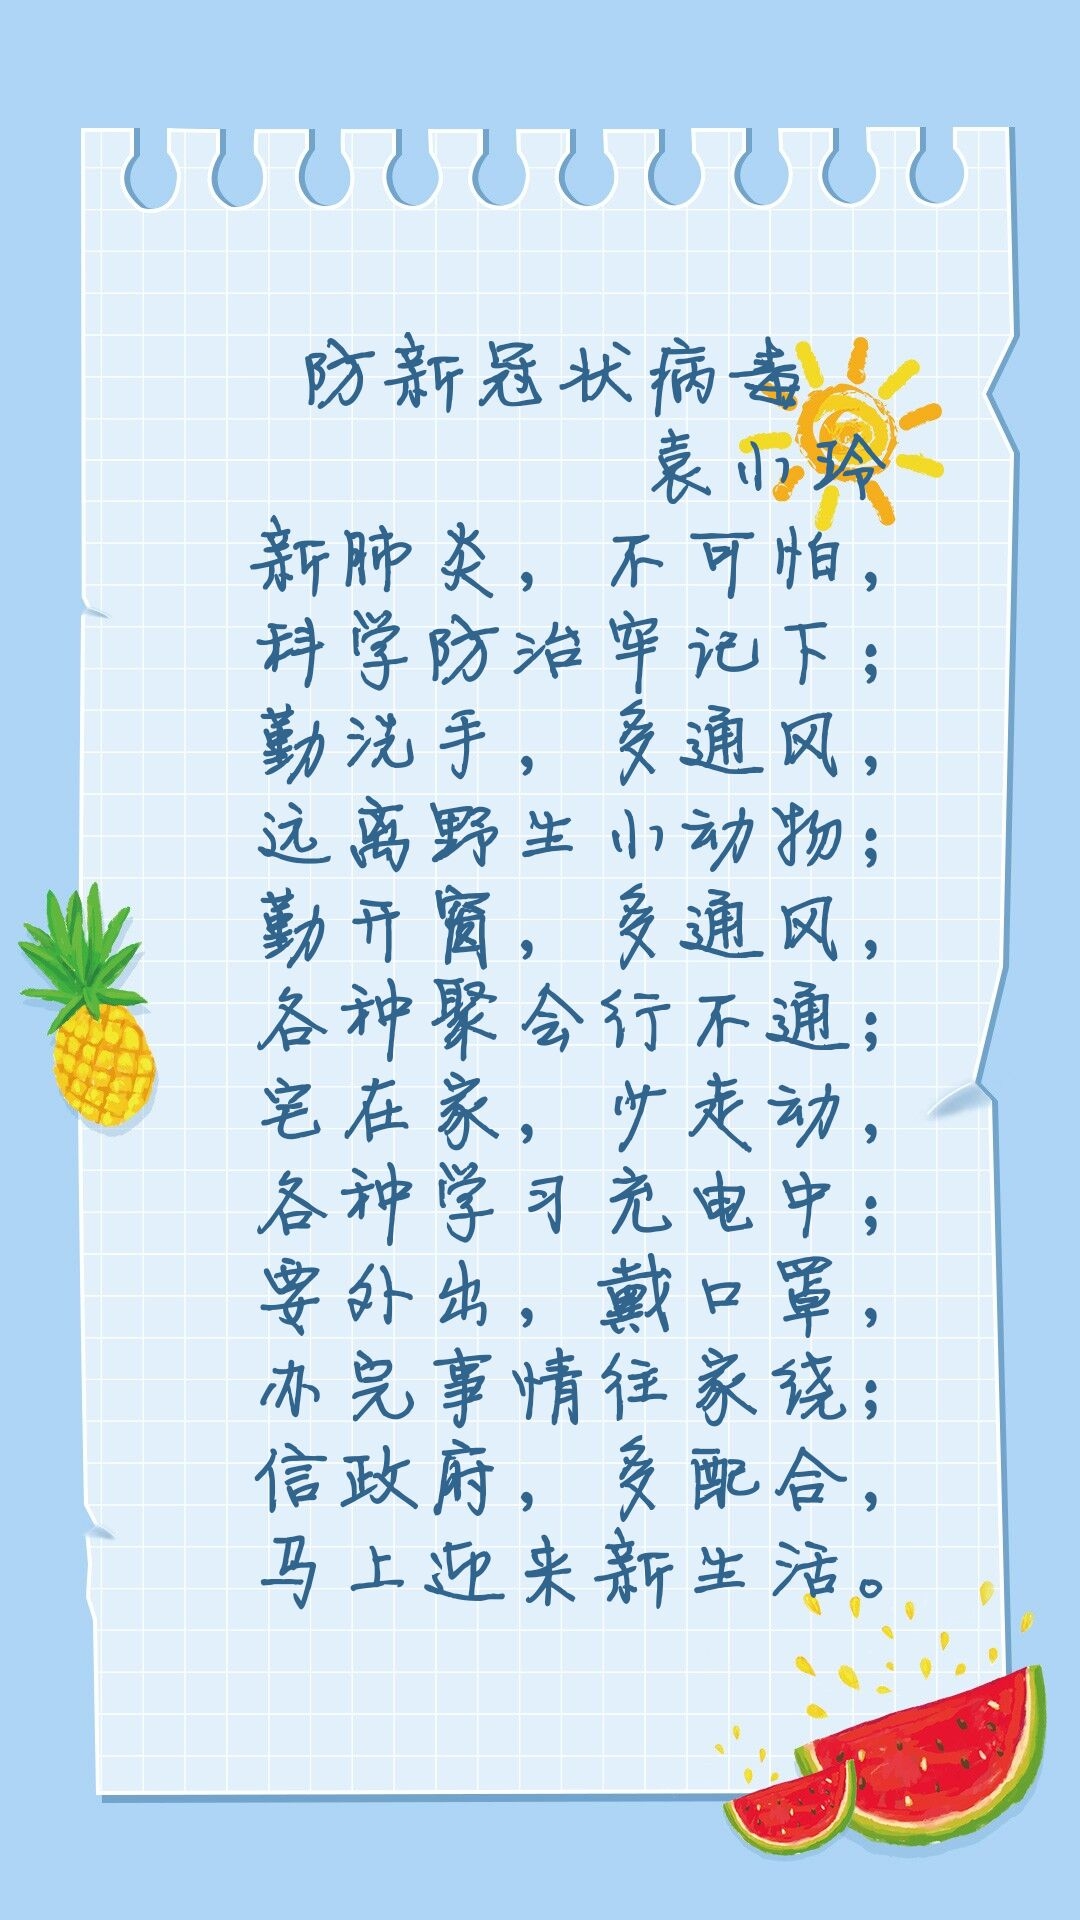 防新冠状病毒
袁小玲
新肺炎，不可怕，
科学防治牢记下；
勤洗手，多通风，
远离野生小动物；
勤开窗，多通风，
各种聚会行不通；
宅在家，少走动，
各种学习充电中；
要外出，戴口罩，
办完事情往家绕；
信政府，多配合，
马上迎来新生活。